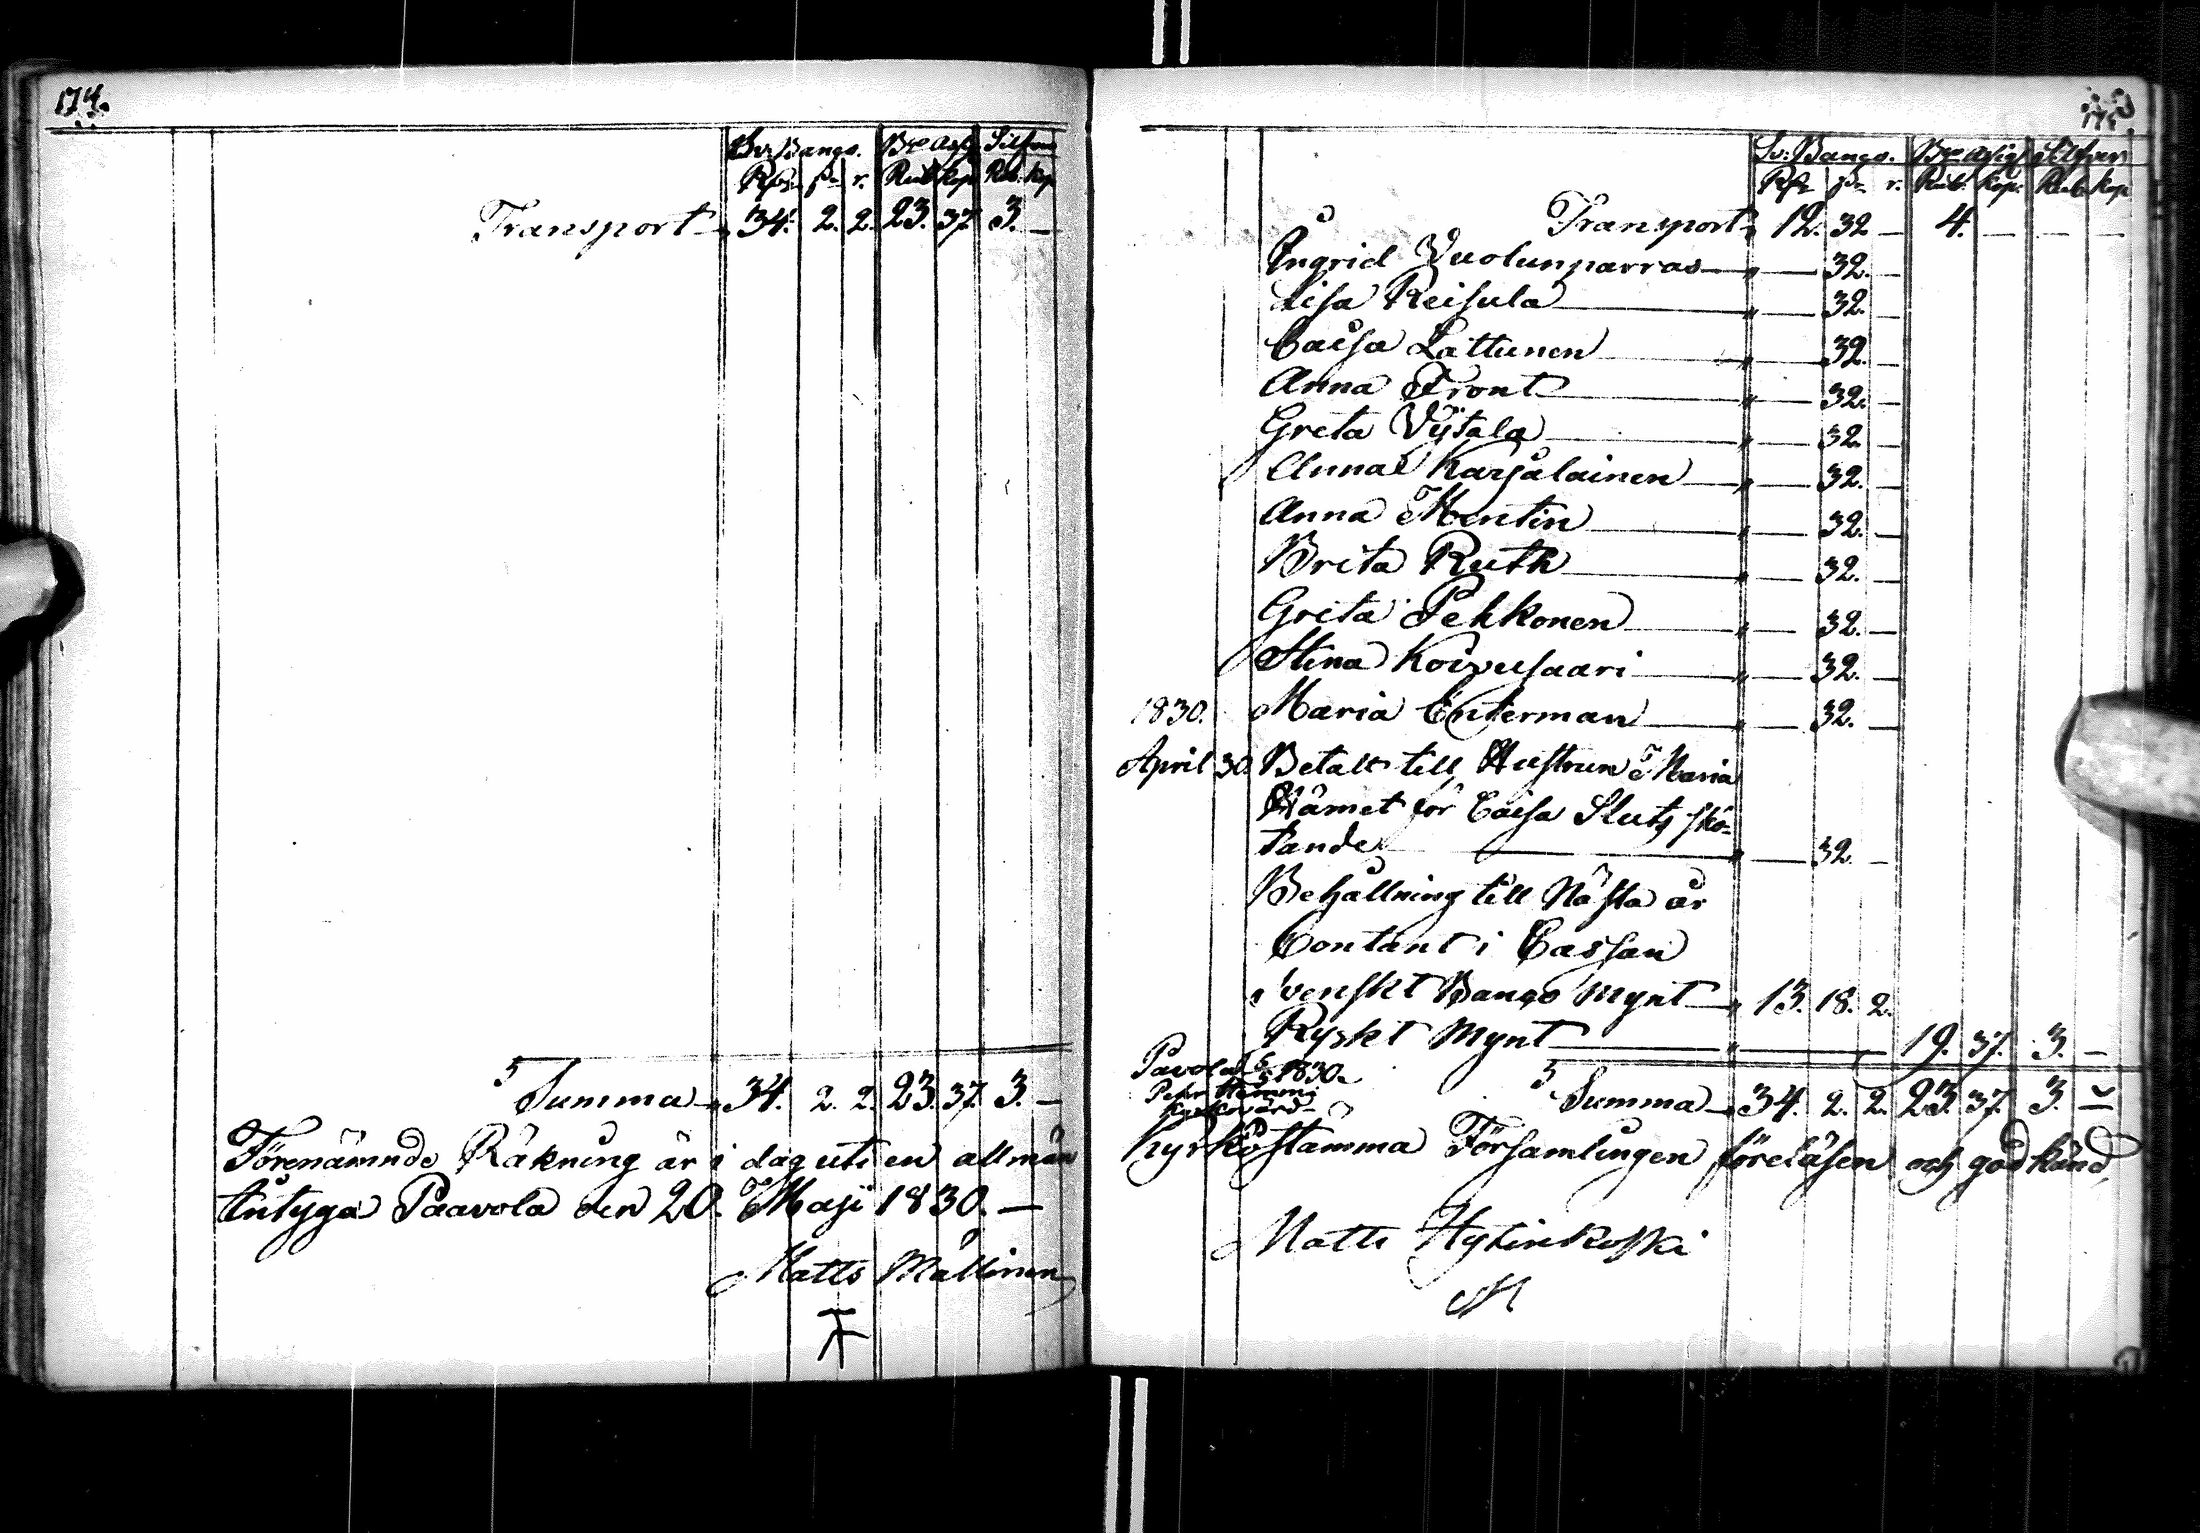 174.
Sv: Banco. Bco Assig Silfver
Rdr ß r. Rub. Kop. Rub. Kop.
Transport 34. 2. 2. 23. 37. 3. —
Summa 34. 2. 2. 23. 37. 3. —
Förenämnde Räkning är i dag uti en allmän
intyga Paavola den 20. Maji 1830. —
Matts Mallinen
175
Sv: Banco. Bco Assig Silfver
Rdr ß r. Rub. Kop. Rub. Kop.
Transport 12. 32 — 4. — — —
Ingrid Vuolunparras " — 32. —
Lisa Reisula " — 32. —
Caisa Lattunen " — 32. —
Anna Front " — 32. —
Greta Ylitala " — 32. —
Anna Karjalainen " — 32. —
Anna Mentin " — 32. —
Brita Ruth " — 32. —
Greta Pekkonen " — 32. —
Stina Koivusaari " — 32. —
1830. Maria Enterman " — 32. —
April 30. Betalt till Hustrun Maria
för Caisa Slutz skö-
tande " — 32. —
Behållning till Nästa år
Contant i Cassan
Svenskt Banco Mynt " 13. 18. 2.
Ryskt Mynt " — 19. 37. 3. —
Pavola 1830.
Petter
Kyrkovärd
Summa 34. 2. 2. 23. 37. 3. —
Kyrkostämma Församlingen föreläsen och godkänd,
Matts Hylinkoski